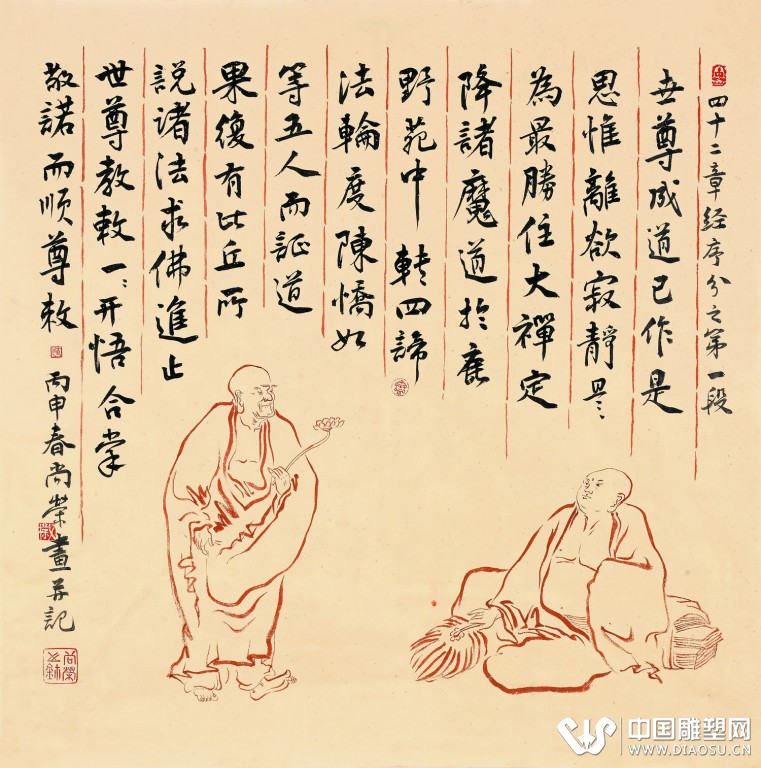 四十二章经序分之第一段
世尊成道已作是
思惟離欲寂靜是
為最勝住大禪定
降諸魔道於鹿
野苑中轉四諦
法輪度陳憍如
等五人而証道
果復有比丘所
說诸法求佛進止
世尊教敕一一开悟合掌
敬諾而順尊敕
丙申春尚荣畫并記
中国雕塑网
WWW.DIAOSU.CN